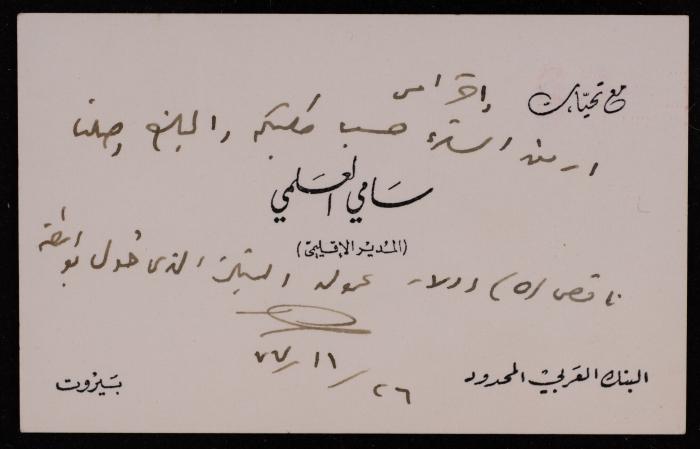 مع تحيات واحترامي
حسب طلبكم والمبلغ وصلنا
سامي العلمي
(المدير الإقليمي)
ناقص (٥) دولار عمولة البنك الذي حول بواسطته
٢٦/١١/٧٧
البنك العربي المحدود
بيروت